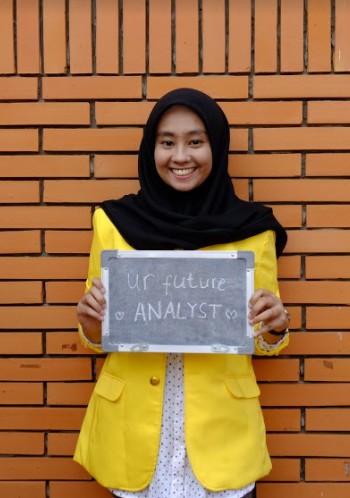 ur future
ANALYST